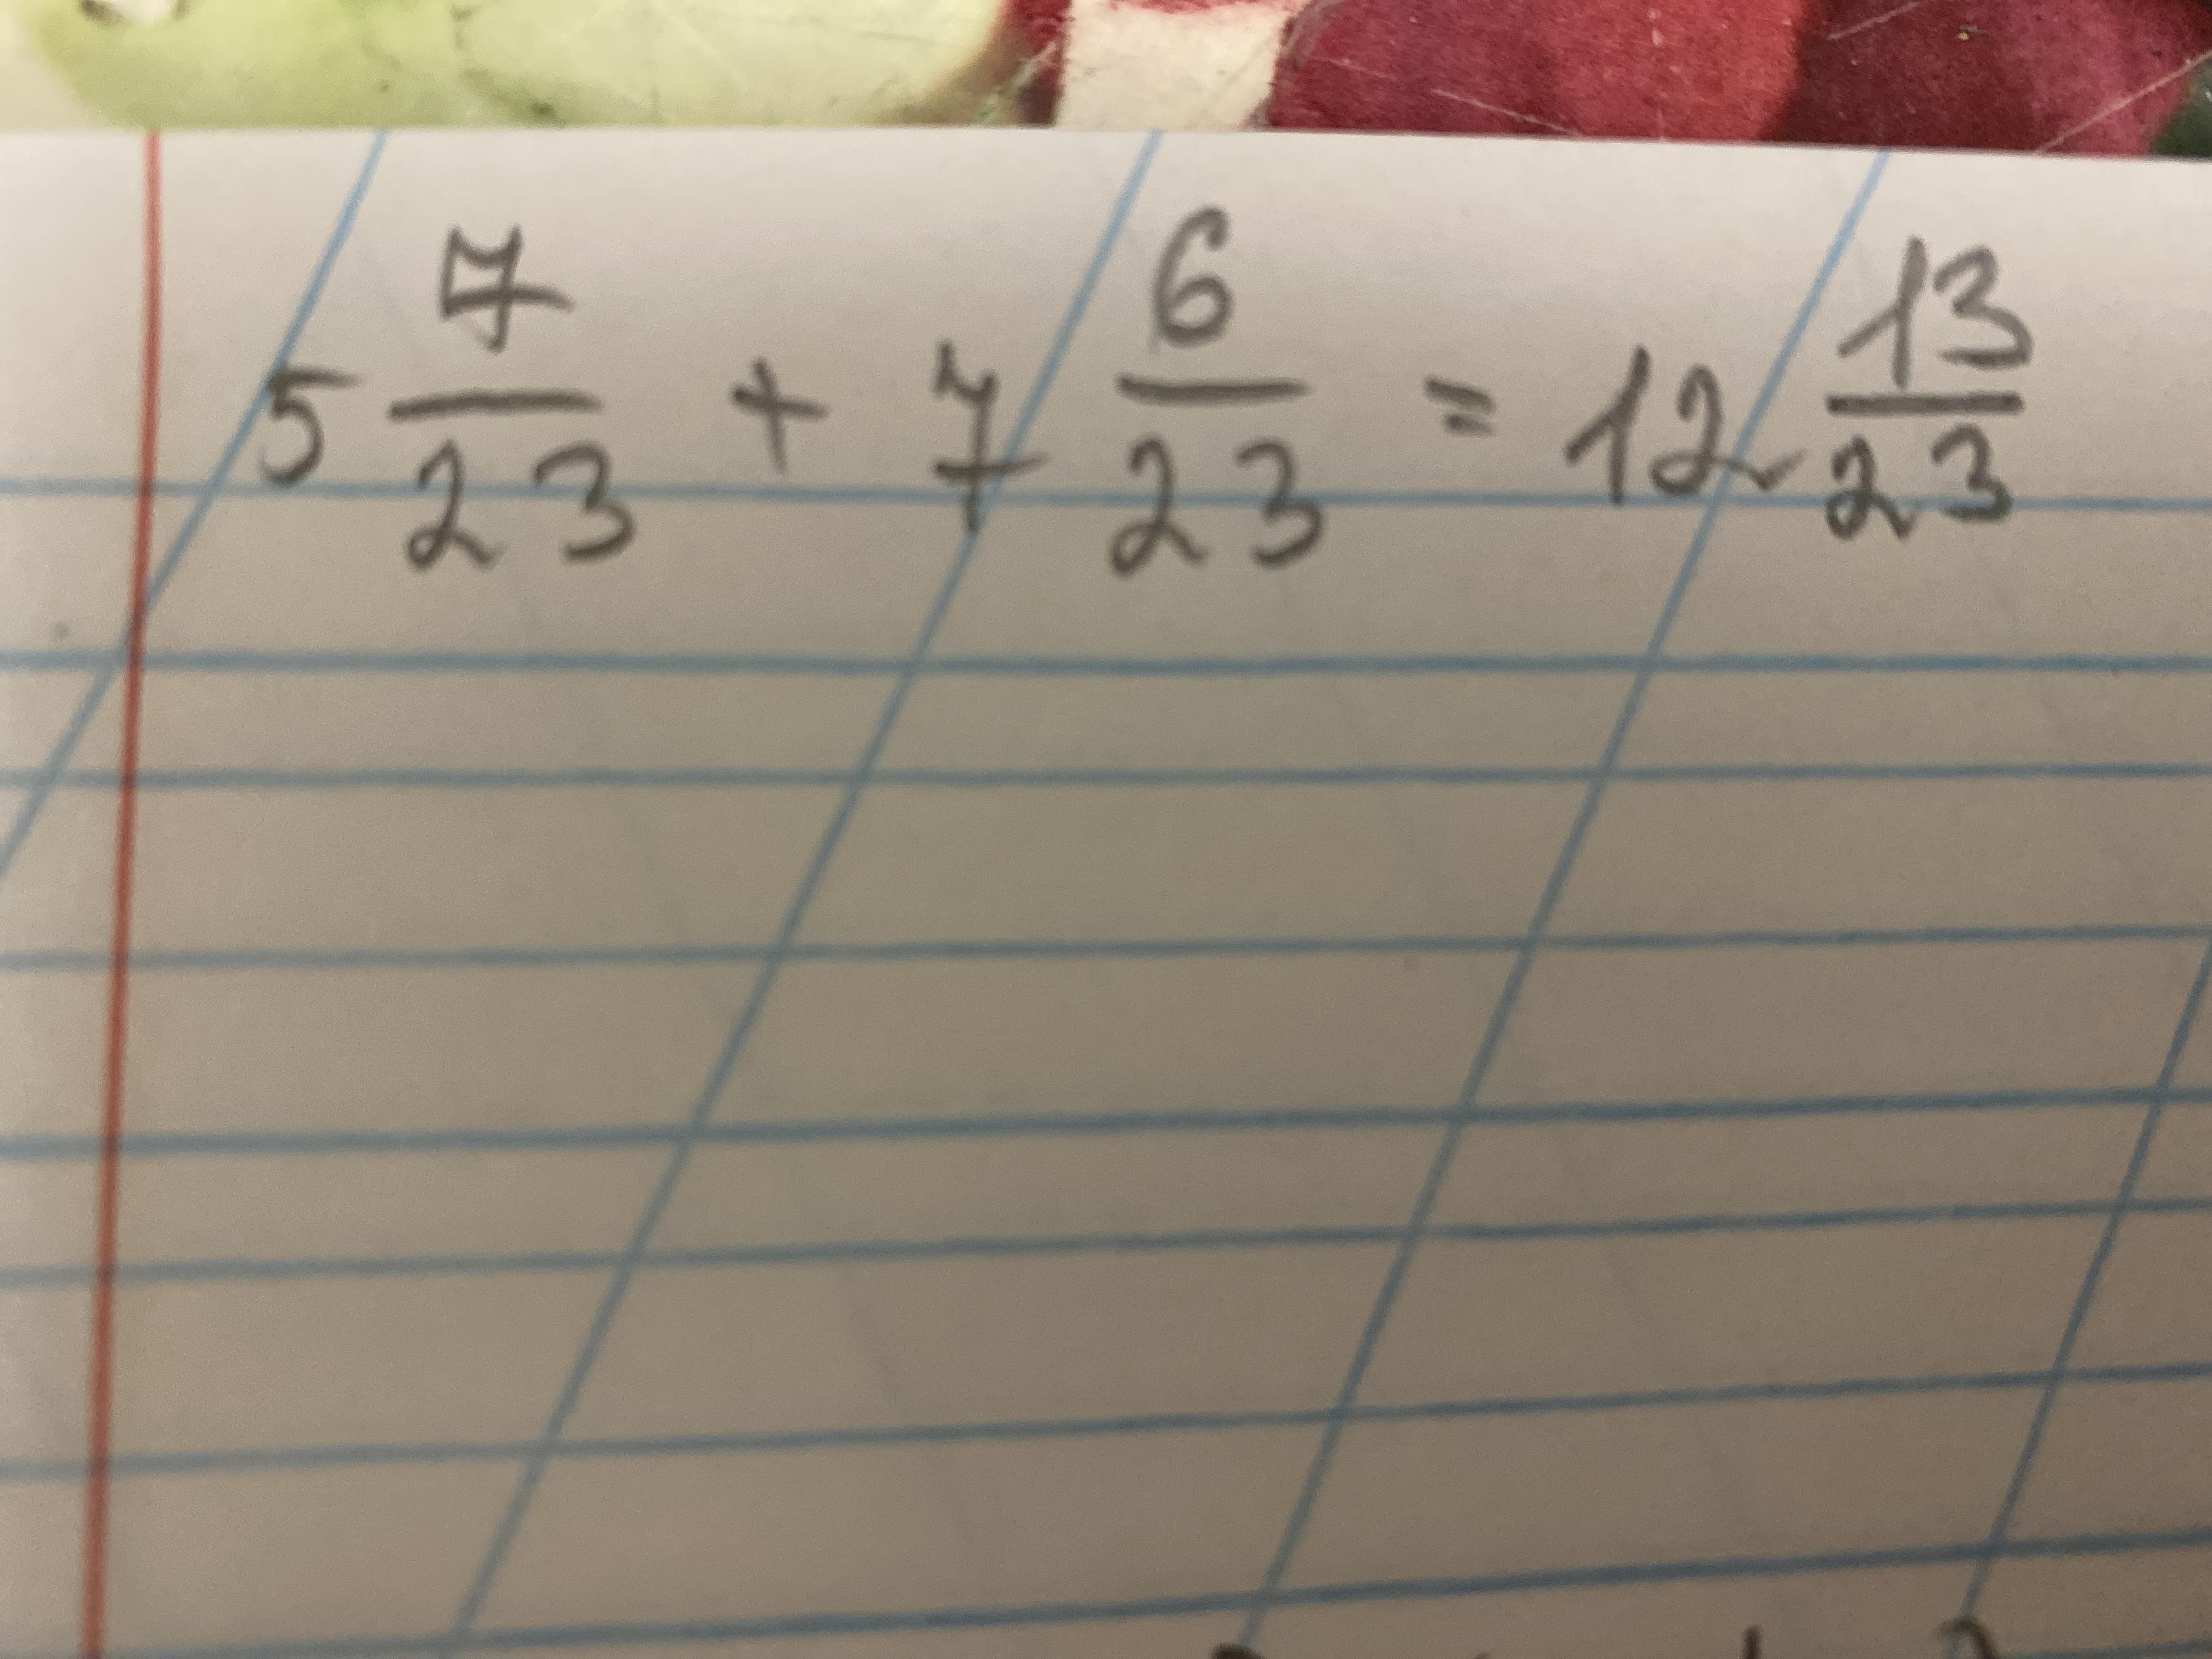 5 7/23 + 7 6/23 = 12 13/23